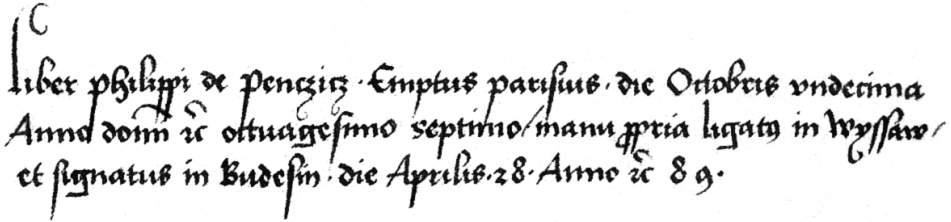 C
Liber philippi de Penczicz · Emptus parisius · die Octobris vndecima
Anno domī ⁊c̄ octuagesimo septimo / manu ꝓpria ligatꝰ in Wyssaw /
et signatus in Budesin · die Aprilis · 28 · Anno ⁊c̄ 89 ·